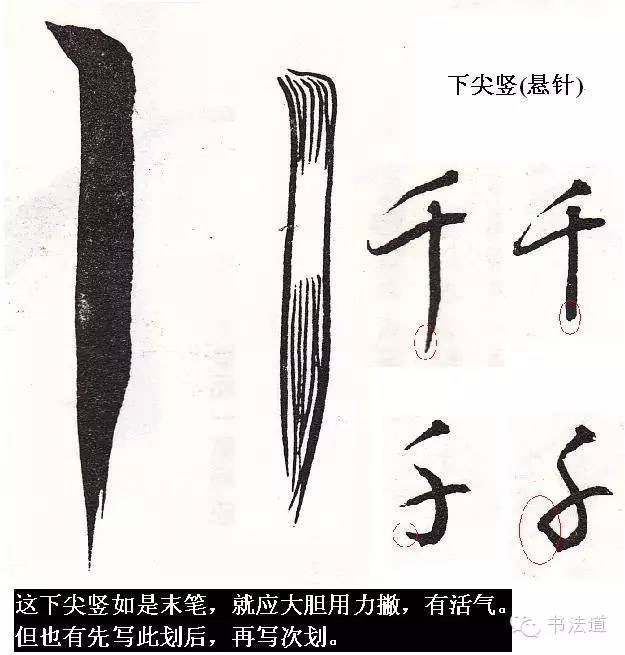 下尖竖(悬针)
千 千
千 千
这下尖竖如是末笔，就应大胆用力撇，有活气。
但也有先写此划后，再写次划。
书法道